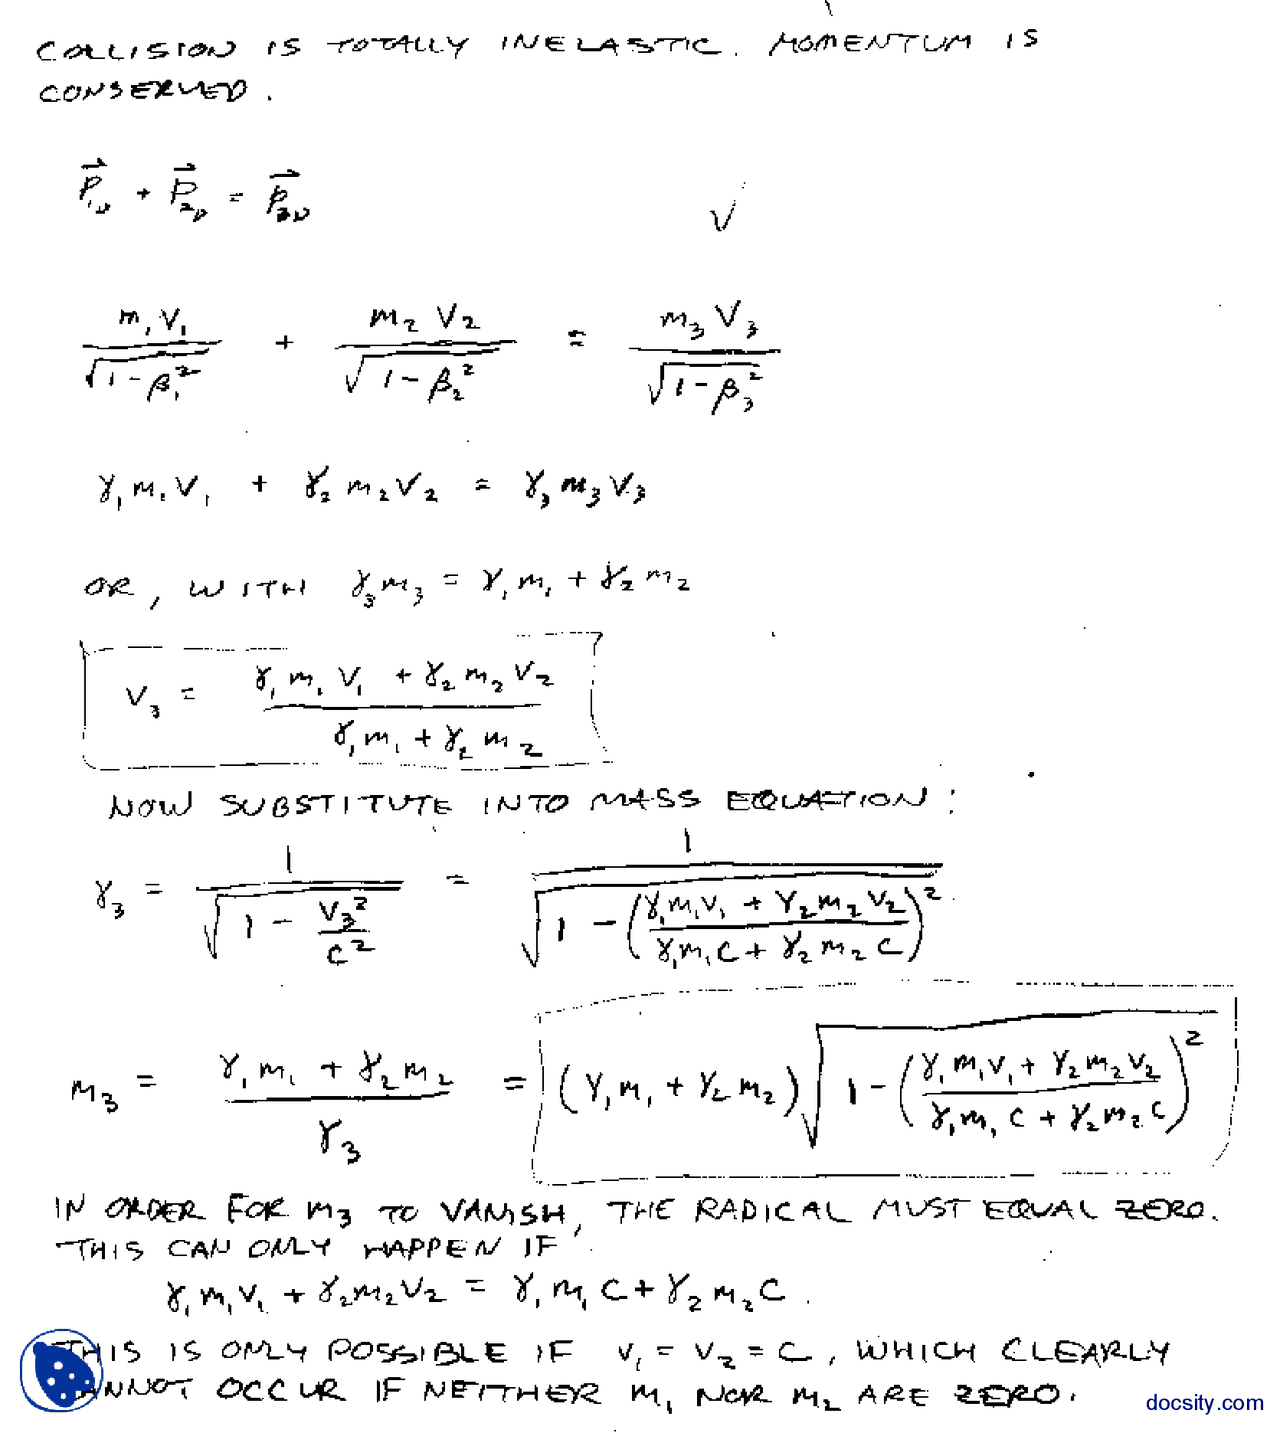 COLLISION IS TOTALLY INELASTIC. MOMENTUM IS
CONSERVED.
P⃗₁ᵥ + P⃗₂ᵥ = P⃗₃ᵥ
√
m₁V₁/√(1-β₁²) + m₂V₂/√(1-β₂²) = m₃V₃/√(1-β₃²)
γ₁m₁V₁ + γ₂m₂V₂ = γ₃m₃V₃
OR, WITH γ₃m₃ = γ₁m₁ + γ₂m₂
V₃ = (γ₁m₁V₁ + γ₂m₂V₂)/(γ₁m₁ + γ₂m₂)
NOW SUBSTITUTE INTO MASS EQUATION:
γ₃ = 1/√(1 - V₃²/C²) = 1/√(1 - ((γ₁m₁V₁ + γ₂m₂V₂)/(γ₁m₁C + γ₂m₂C))²)
m₃ = (γ₁m₁ + γ₂m₂)/γ₃ = (γ₁m₁ + γ₂m₂)√(1 - ((γ₁m₁V₁ + γ₂m₂V₂)/(γ₁m₁C + γ₂m₂C))²)
IN ORDER FOR m₃ TO VANISH, THE RADICAL MUST EQUAL ZERO.
THIS CAN ONLY HAPPEN IF
γ₁m₁V₁ + γ₂m₂V₂ = γ₁m₁C + γ₂m₂C.
THIS IS ONLY POSSIBLE IF V₁ = V₂ = C, WHICH CLEARLY
CANNOT OCCUR IF NEITHER m₁ NOR m₂ ARE ZERO.
docsity.com